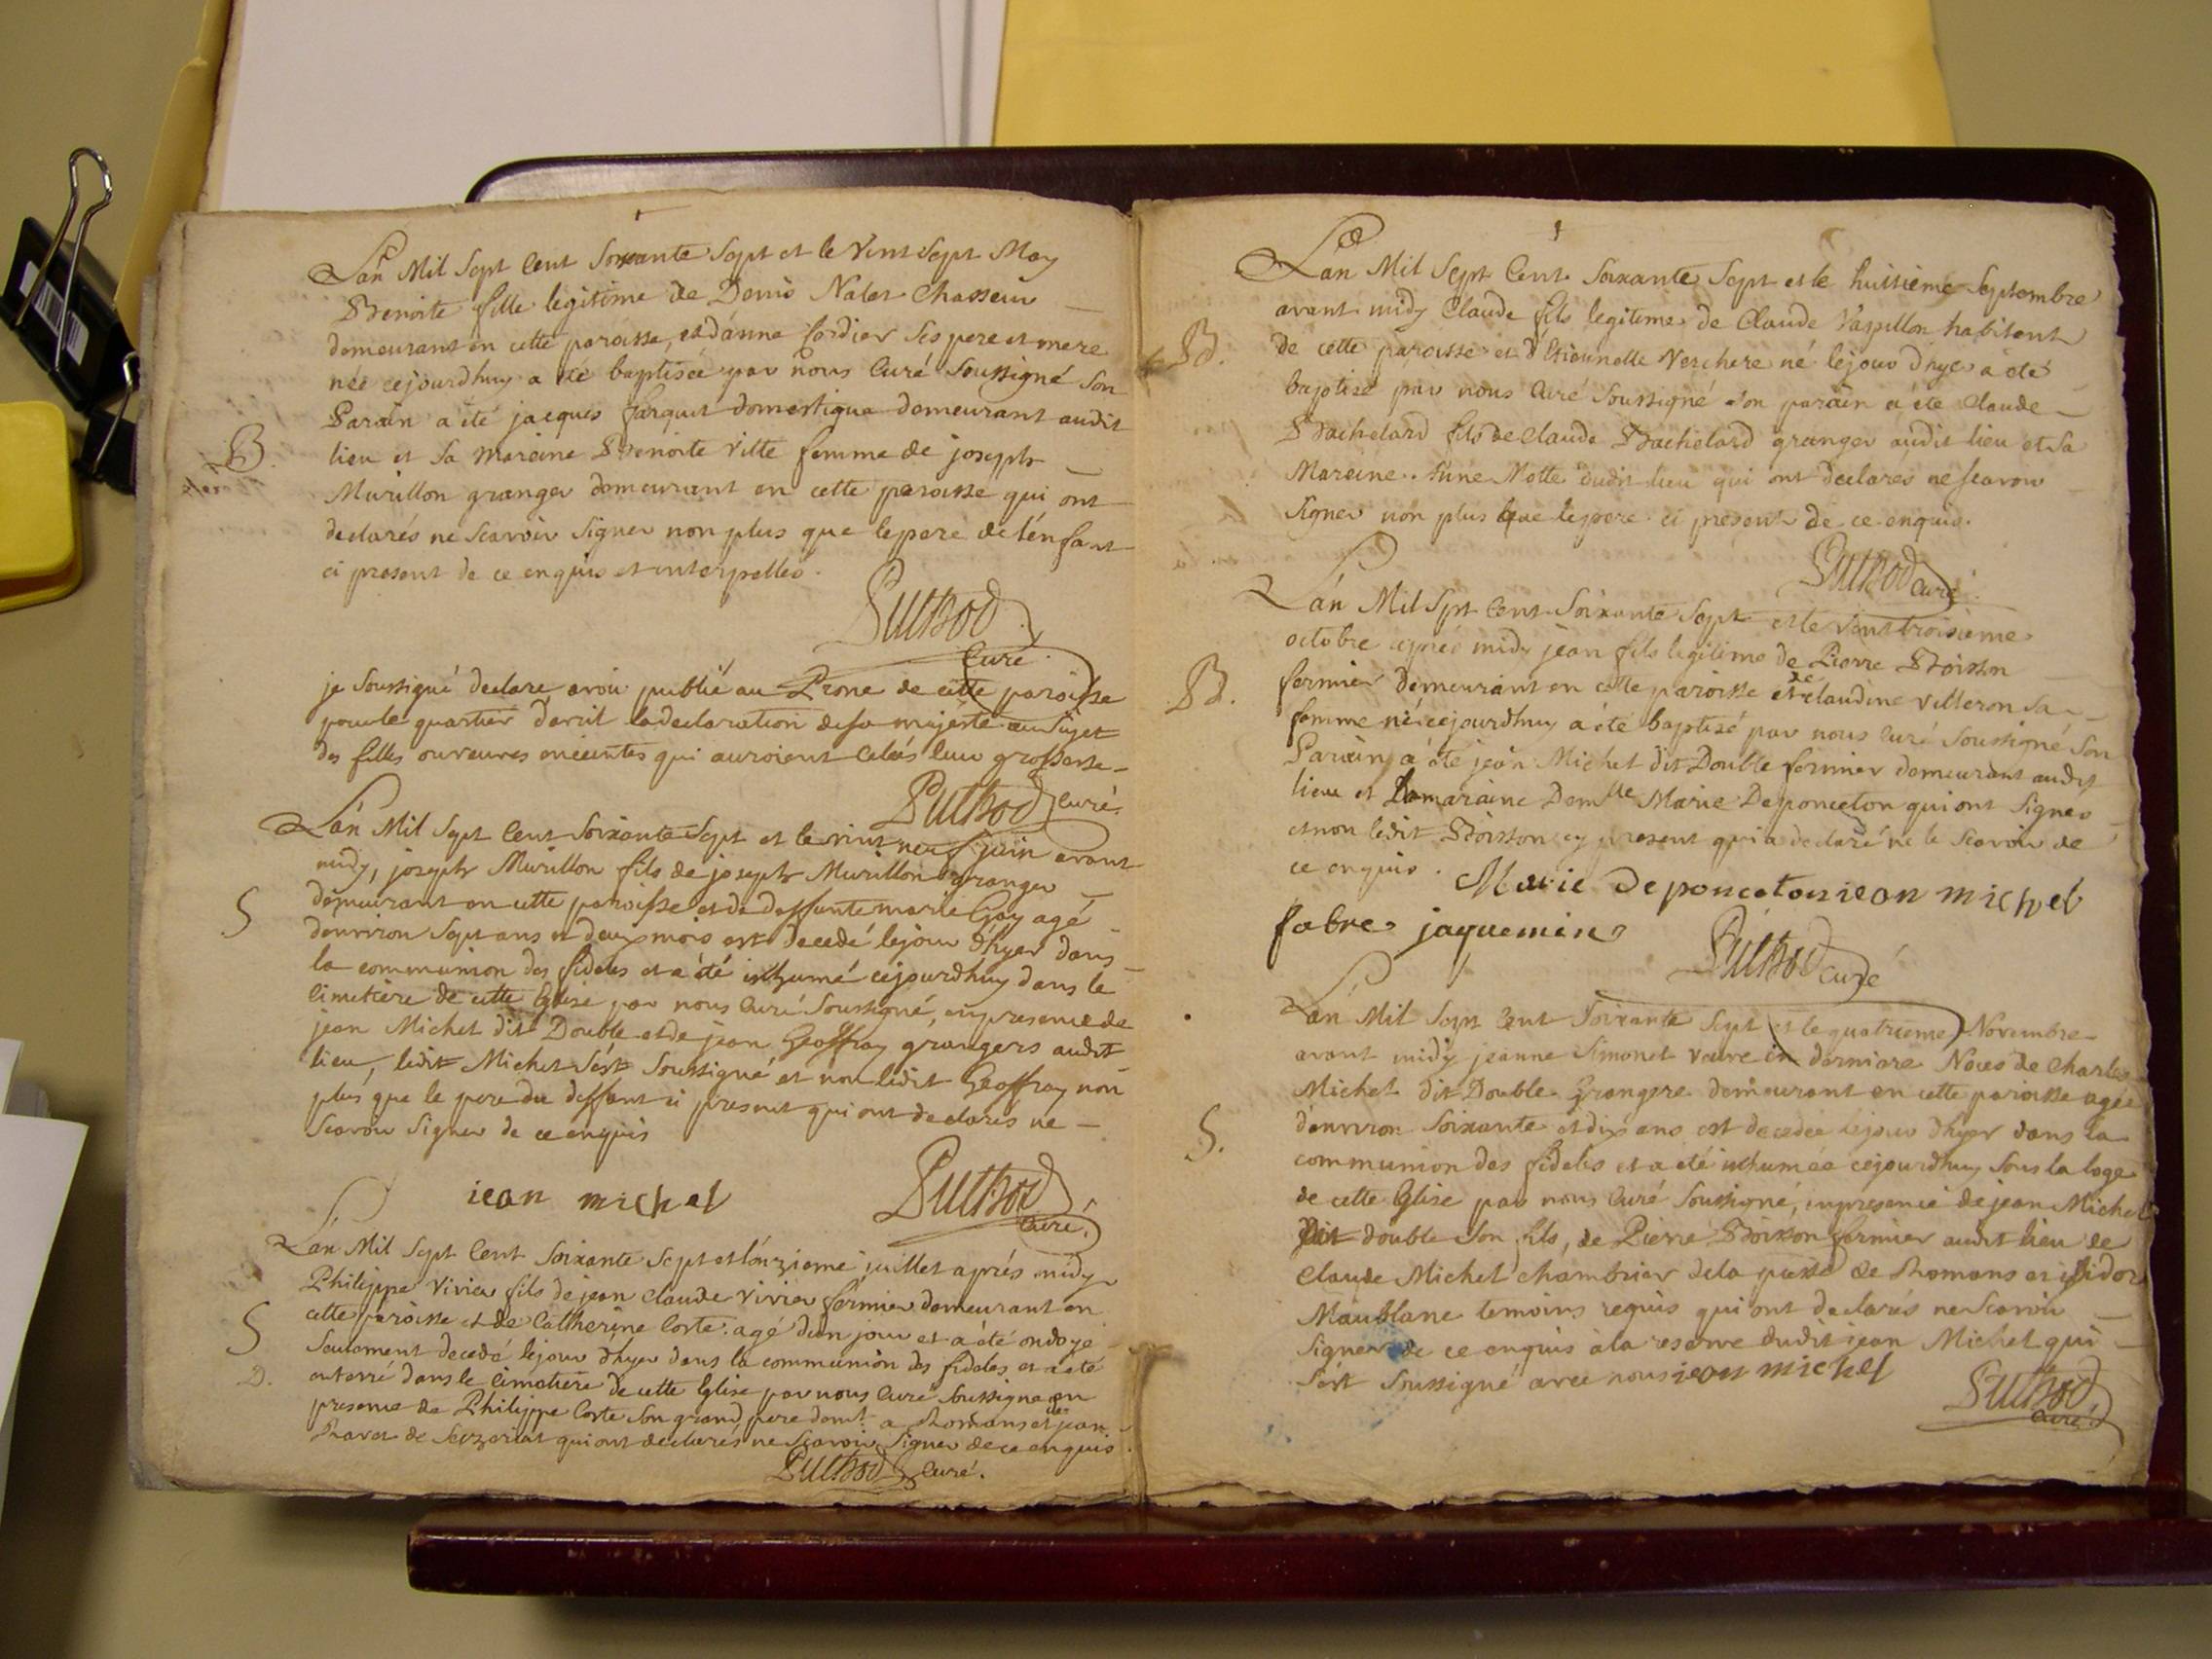 L'an Mil Sept Cent Soixante Sept et le Vint Sept May
Benoite fille legitime de Denis Nalet Chasseur
demeurant en cette paroisse, et d'anne Cordier Ses pere et mere
née cejourdhuy a été baptisée par nous Curé Soussigné Son
Parain a été jacques farguit domestique demeurant audit
B. lieu et Sa Maraine Benoite Vitte femme de joseph
Murillon granger demeurant en cette paroisse qui ont
declarés ne Scavoir Signer non plus que le pere de l'énfant
ci present de ce enquis et interpellés.
Puthod
Curé
je Soussigné declare avoir publié au Prone de cette paroisse
pour le quartier d'avril la declaration de sa majésté au Sujet
des filles ou veuves enceintes qui auroient celés leur grossesse
Puthod Curé
L'án Mil Sept Cent Soixante Sept et le vint neuf juin avant
midy, joseph Murillon fils de joseph Murillon granger
S demeurant en cette paroisse et de deffunte marie Gay agé
d'environ Sept ans et deux mois est decedé le jour d'hyer dans
la communion des fideles et a été inhumé cejourdhuy dans le
Cimetière de cette Eglise par nous Curé Soussigné, en presence de
jean Michel dit Double et de jean Geoffray grangers audit
lieu, ledit Michel S'ést Soussigné et non ledit Geoffray non
plus que le pere du deffunt ci present qui ont declarés ne
Scavoir Signer de ce enquis
jean michel Puthod
Curé
L'an Mil Sept Cent Soixante Sept et l'onzieme juillet aprés midy
Philippe Vivier fils de jean claude Vivier fermier demeurant en
cette paroisse et de Catherine Corte agé d'un jour et a été ondoyé
S Seulement decedé le jour d'hyer dans la communion des fideles et a été
D. enterré dans le cimetiere de cette Eglise par nous Curé Soussigné en
presence de Philippe Corte Son grand pere demt a Romans et jean
Ravet de qui ont declarés ne Scavoir Signer de ce enquis
Puthod Curé.
L'an Mil Sept Cent Soixante Sept et le huitiéme Septembre
avant midy Claude fils legitime de Claude Vaspillon habitent
B. de cette paroisse et d'Etiennette Verchere né le jour d'hyer a été
baptisé par nous Curé Soussigné son parain a été Claude
Bachelard fils de Claude Bachelard granger audit lieu et Sa
Maraine Motte dudit lieu qui ont declarés ne scavoir
Signer non plus que le pere ci present de ce enquis.
Puthod Curé
L'án Mil Sept Cent Soixante Sept et le Vint troisieme
octobre aprés midy jean fils legitime de Pierre Boisson
B. fermier demeurant en cette paroisse et de claudine Villeron Sa
femme né cejourdhuy a été baptisé par nous Curé Soussigné Son
Parain a été jean Michel dit Double fermier demeurant audit
lieu et La maraine Demlle Marie Deponceton qui ont Signés
et non ledit Boisson cy present qui a declaré ne le Scavoir de
ce enquis. Marie deponceton jean michel
fabre jaquemin
Puthod Curé
L'án Mil Sept Cent Soixante Sept et le quatrieme Novembre
avant midy jeanne Simonet veuve en derniere Noces de Charles
Michel dit Double Grangere demeurant en cette paroisse agée
S. d'environ Soixante et dix ans est decedée le jour d'hyer dans la
communion des fideles et a été inhumée cejourdhuy Sous la loge
de cette Eglise par nous Curé Soussigné, en presence de jean Michel
dit double Son fils, de Pierre Boisson fermier audit lieu de
Claude Michel chambrier de la de Romans et isidor
Maublanc temoins requis qui ont declarés ne Scavoir
Signer de ce enquis à la reserve dudit jean Michel qui
S'ést Soussigné avec nous jean michel
Puthod
Curé